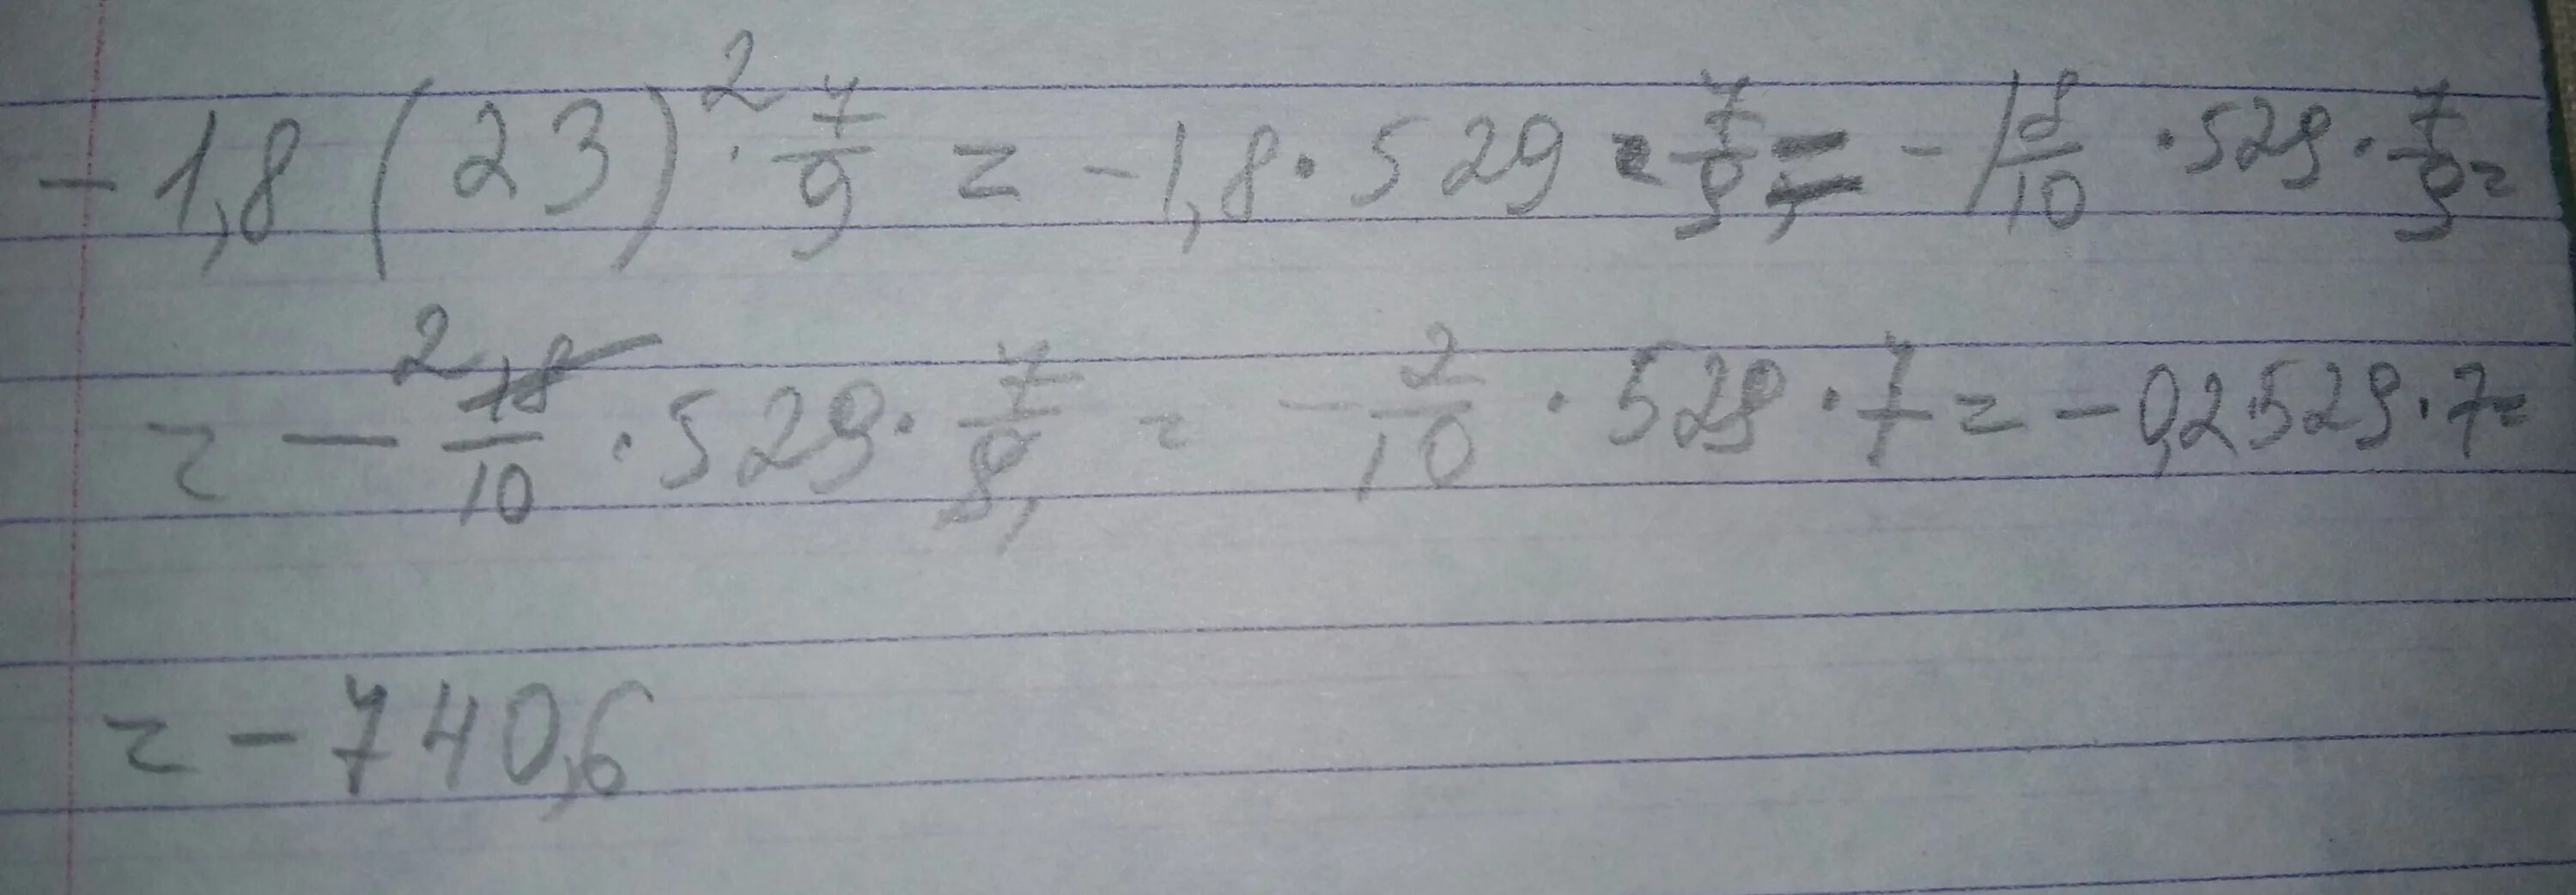 -1,8 (23)² · 7/9 = -1,8 · 529 · 7/9 = -1 8/10 · 529 · 7/9 =
= - 2 18/10 · 529 · 7/9, = - 2/10 · 529 · 7 = -0,2 · 529 · 7 =
= -740,6